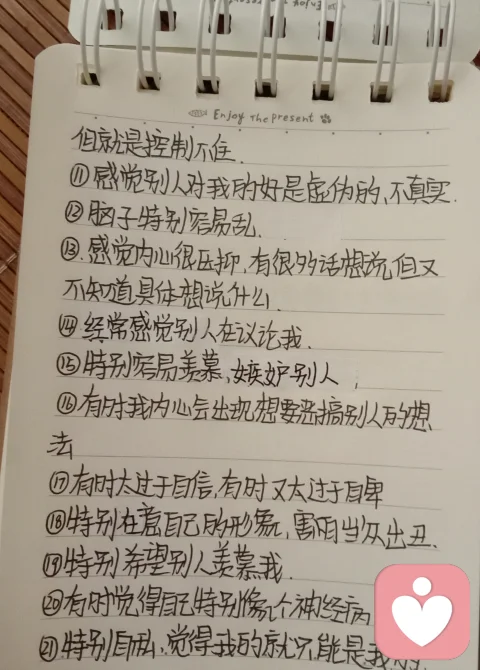 Enjoy The present
但就是控制不住.
⑪感觉别人对我的好是虚伪的,不真实.
⑫脑子特别容易乱.
⑬.感觉内心很压抑,有很多话想说,但又
不知道具体想说什么.
⑭经常感觉别人在议论我.
⑮特别容易羡慕,嫉妒别人
⑯有时我内心会出现想要恶搞别人的想
法
⑰有时太过于自信,有时又太过于自卑
⑱特别在意自己的形象,害怕当众出丑.
⑲特别希望别人羡慕我.
⑳有时觉得自己特别像个神经病
㉑特别自私,觉得我的就只能是我的